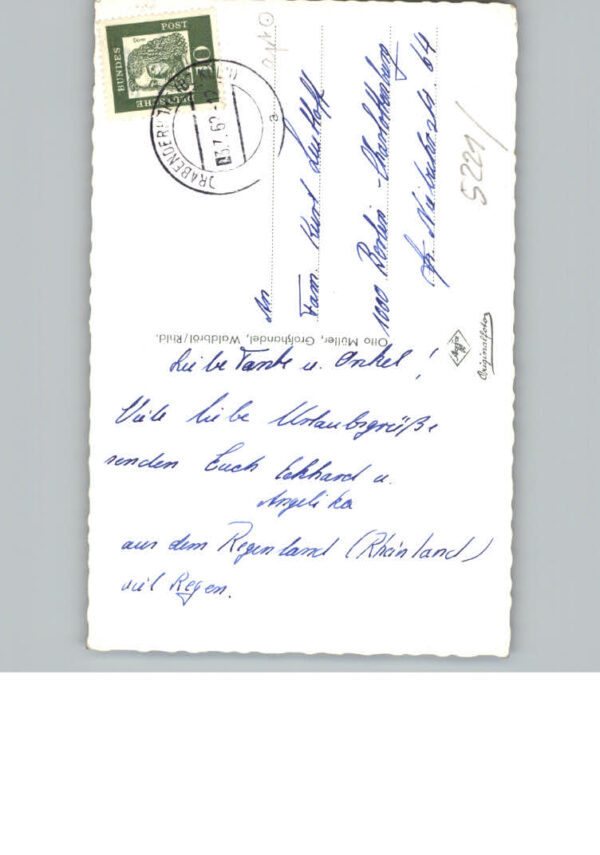 Liebe Tante u. Onkel!
Viele liebe Urlaubsgrüße
senden Euch Eckhard u.
Angelika
aus dem Regenland (Rheinland)
viel Regen.
An
Fam. Kurt
1000 Berlin-Charlottenburg
64
Otto Müller, Großhandel, Waldbröl/Rhld.
Agfa
Originalfoto
DEUTSCHE
BUNDES
POST
10
a
5221/